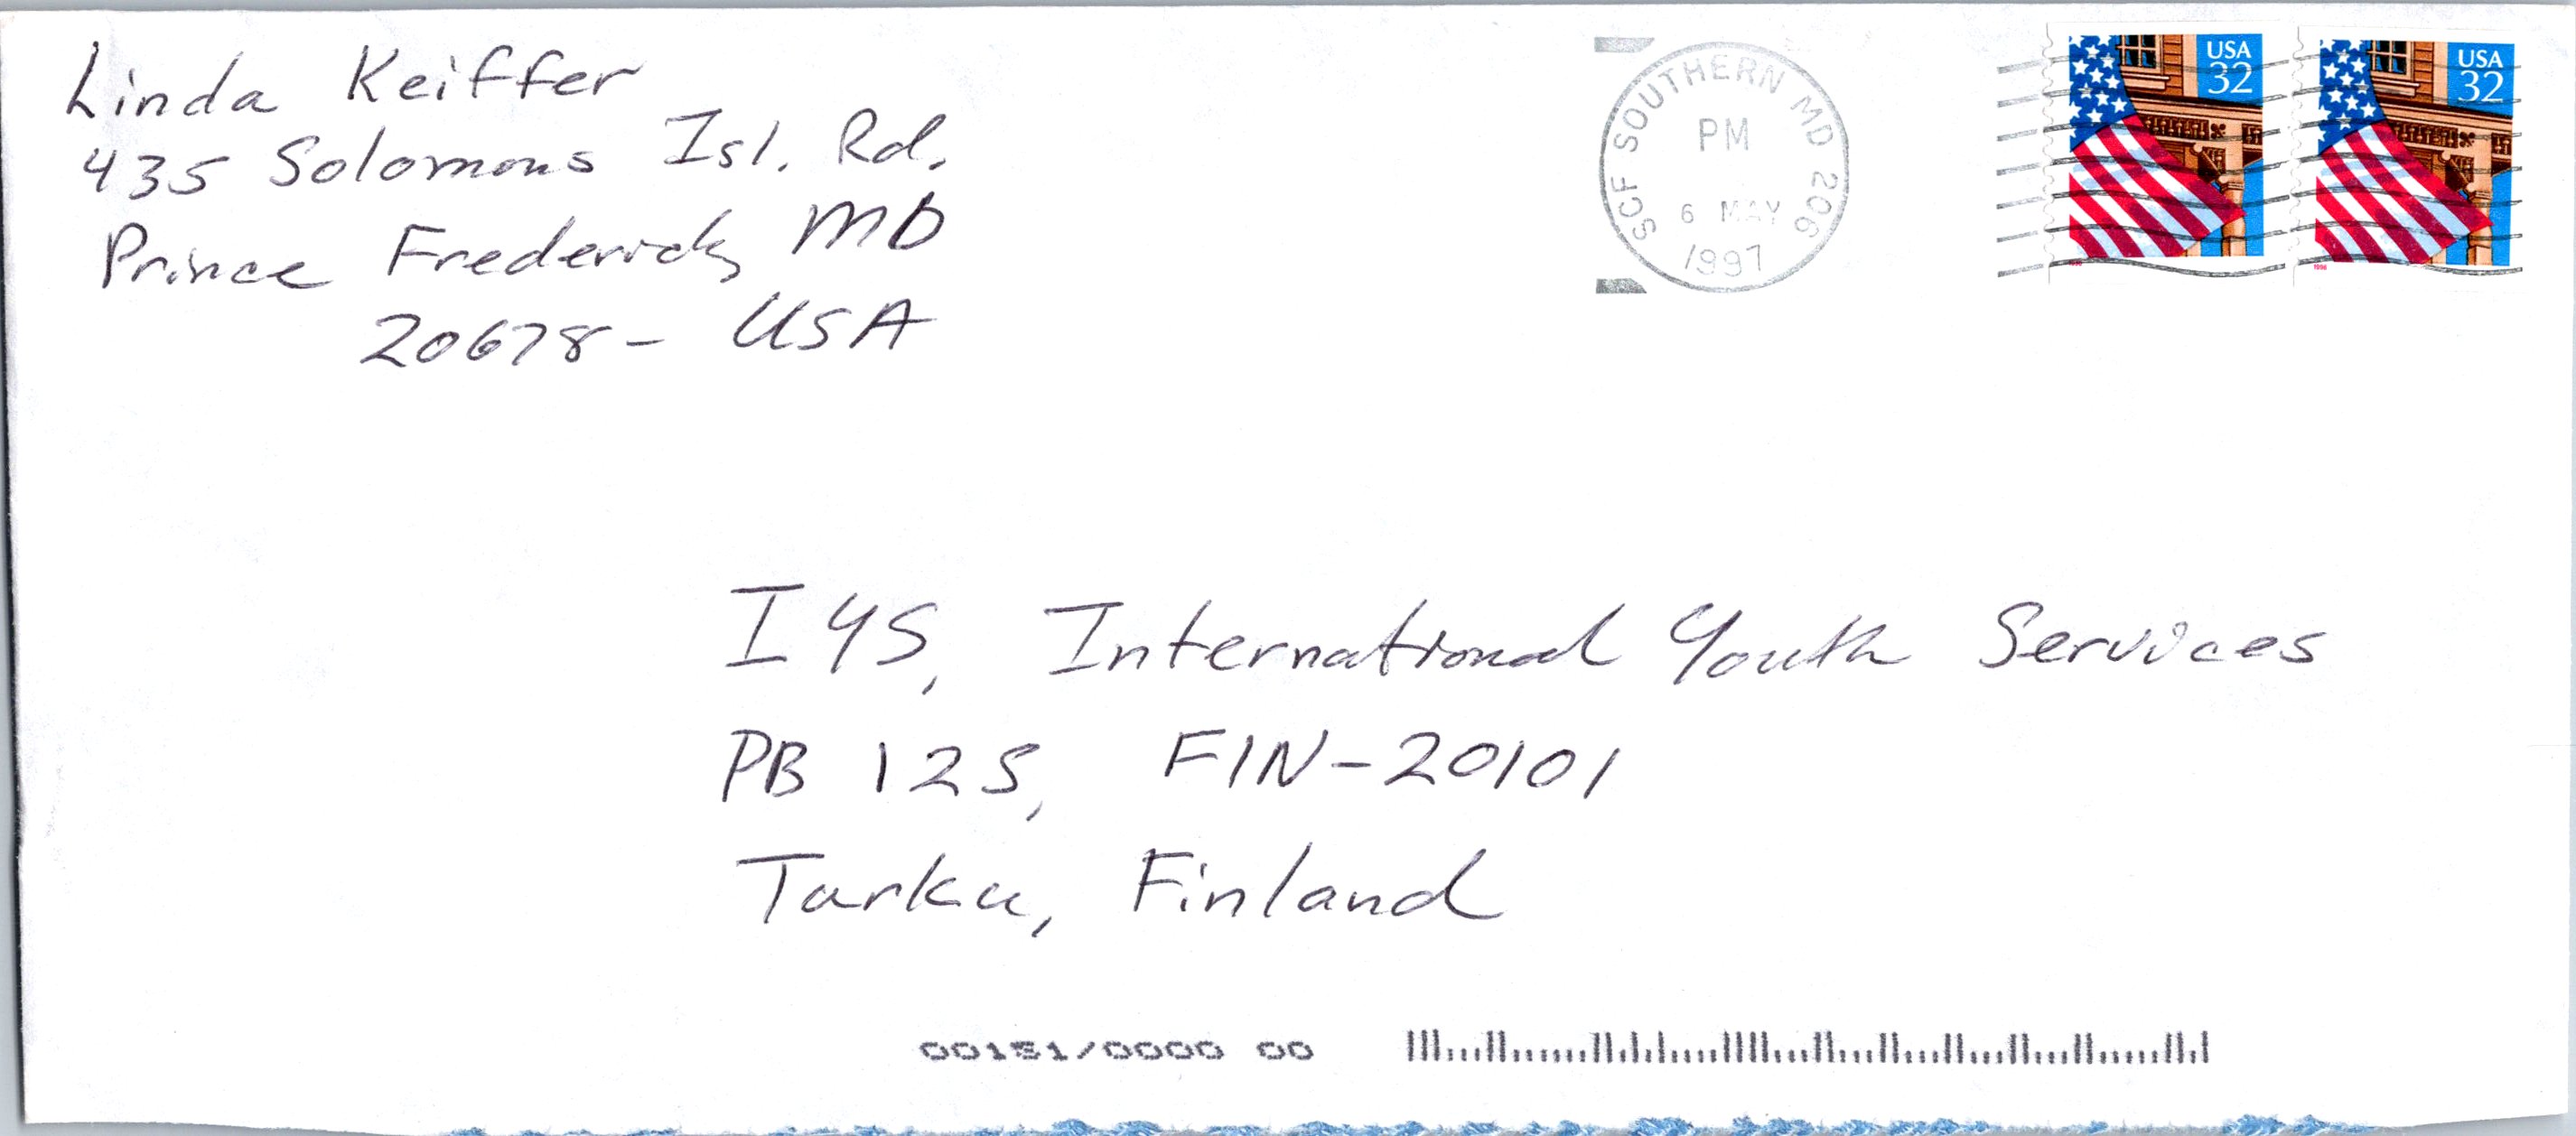 Linda Keiffer
435 Solomons Isl. Rd.
Prince Frederick, MD
20678- USA
SCF SOUTHERN MD 206
PM
6 MAY
1997
USA
32
USA
32
1996
IYS, International Youth Services
PB 125, FIN-20101
Turku, Finland
00151/0000 00